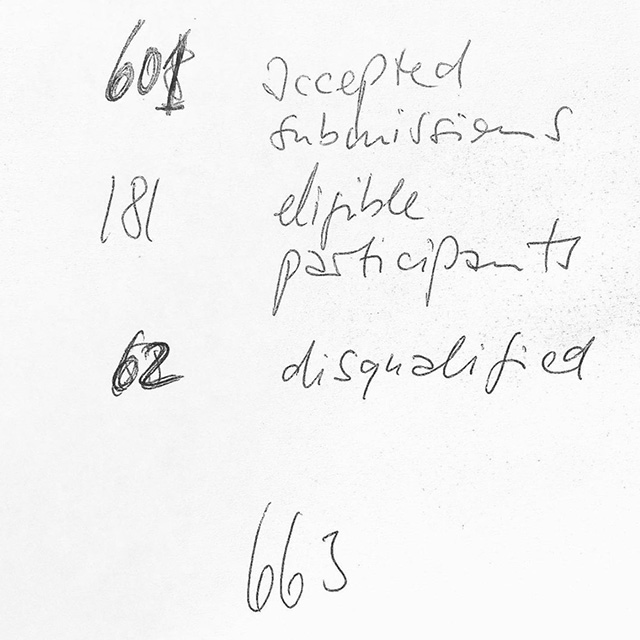 601 accepted
submissions
181 eligible
participants
62 disqualified
663